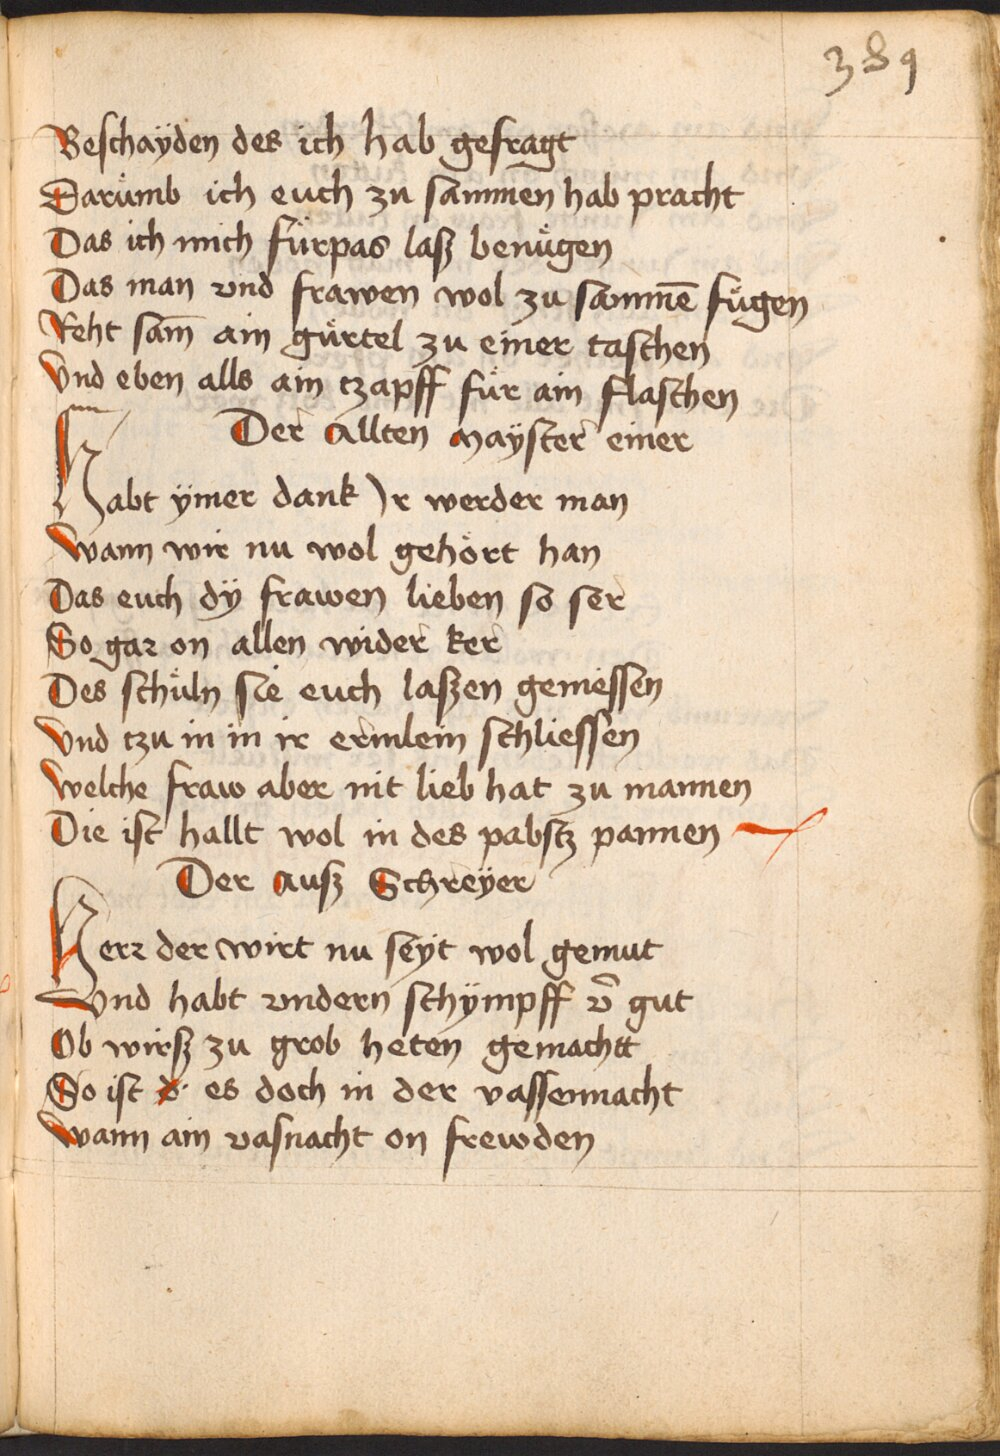 389
Beschaÿden des ich hab gefragt
Darům̈b ich euch zu sammen hab pracht
Das ich mich fürpas laß benůgen
Das man vnd frawen wol zu samme̅ fůgen
Reht sam̅ ain gůrtel zu einer taschen
Vnd eben alls ain tzapff fůr ain flaschen
Der Allten Maÿster einer
Habt ÿmer dank Ir werder man
Wann wir nu wol gehört han
Das euch dÿ frawen lieben so ser
So gar on allen wider ker
Des schůln sie euch laßen geniessen
Vnd tzu in in ir ermlein schliessen
Welche fraw aber nit lieb hat zu mannen
Die ist hallt wol in des pabstz pannen
Der Auß Schreÿer
Herr der wirt nu seÿt wol gemut
Vnd habt vndern schÿmpff v̅ gut
Ob wirß zu grob heten gemachtt
So ist es doch in der vassennacht
Wann ain vasnacht on frewden